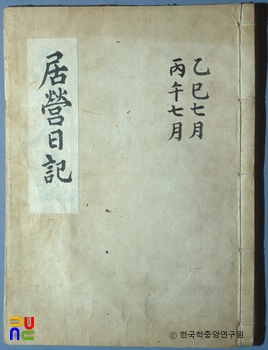 乙巳七月
丙午七月
居營日記
© 한국학중앙연구원